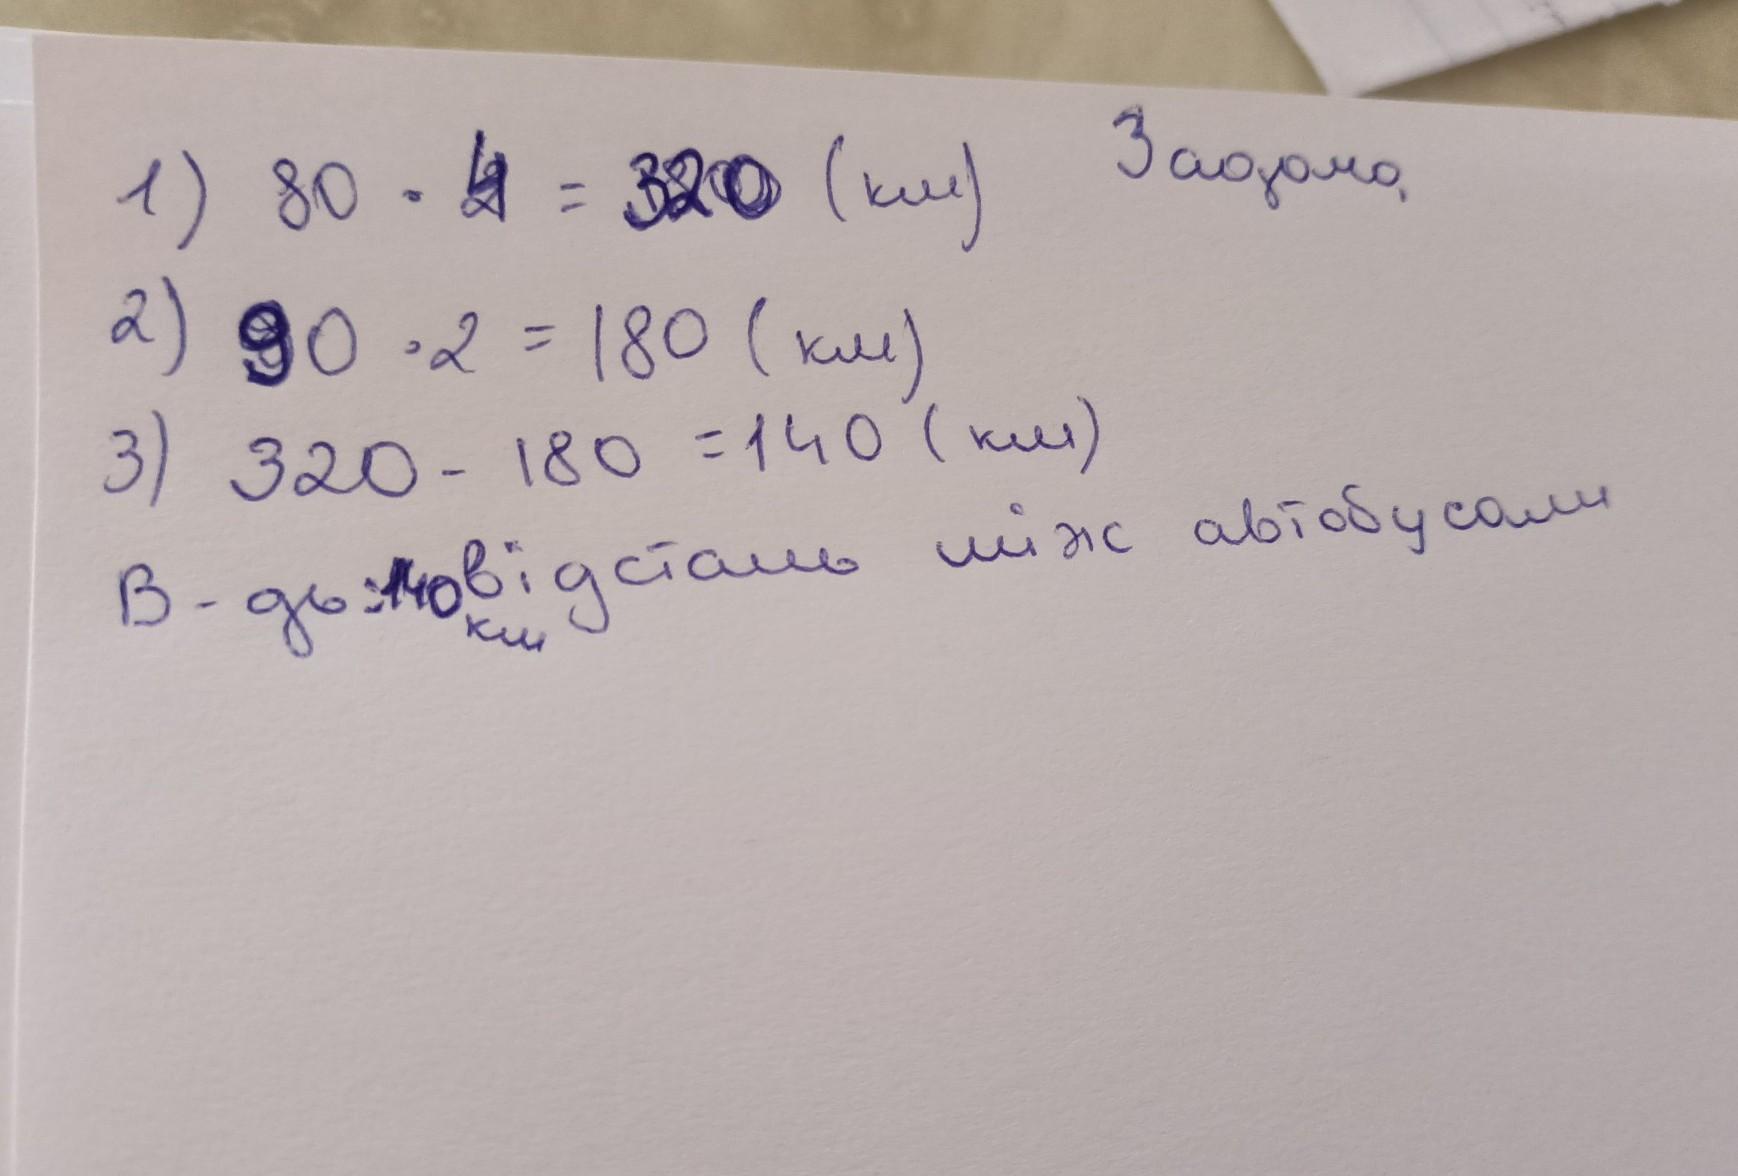 Задача
1) 80 · 4 = 320 (км)
2) 90 · 2 = 180 (км)
3) 320 - 180 = 140 (км)
В-дь: 140 км відстань між автобусами